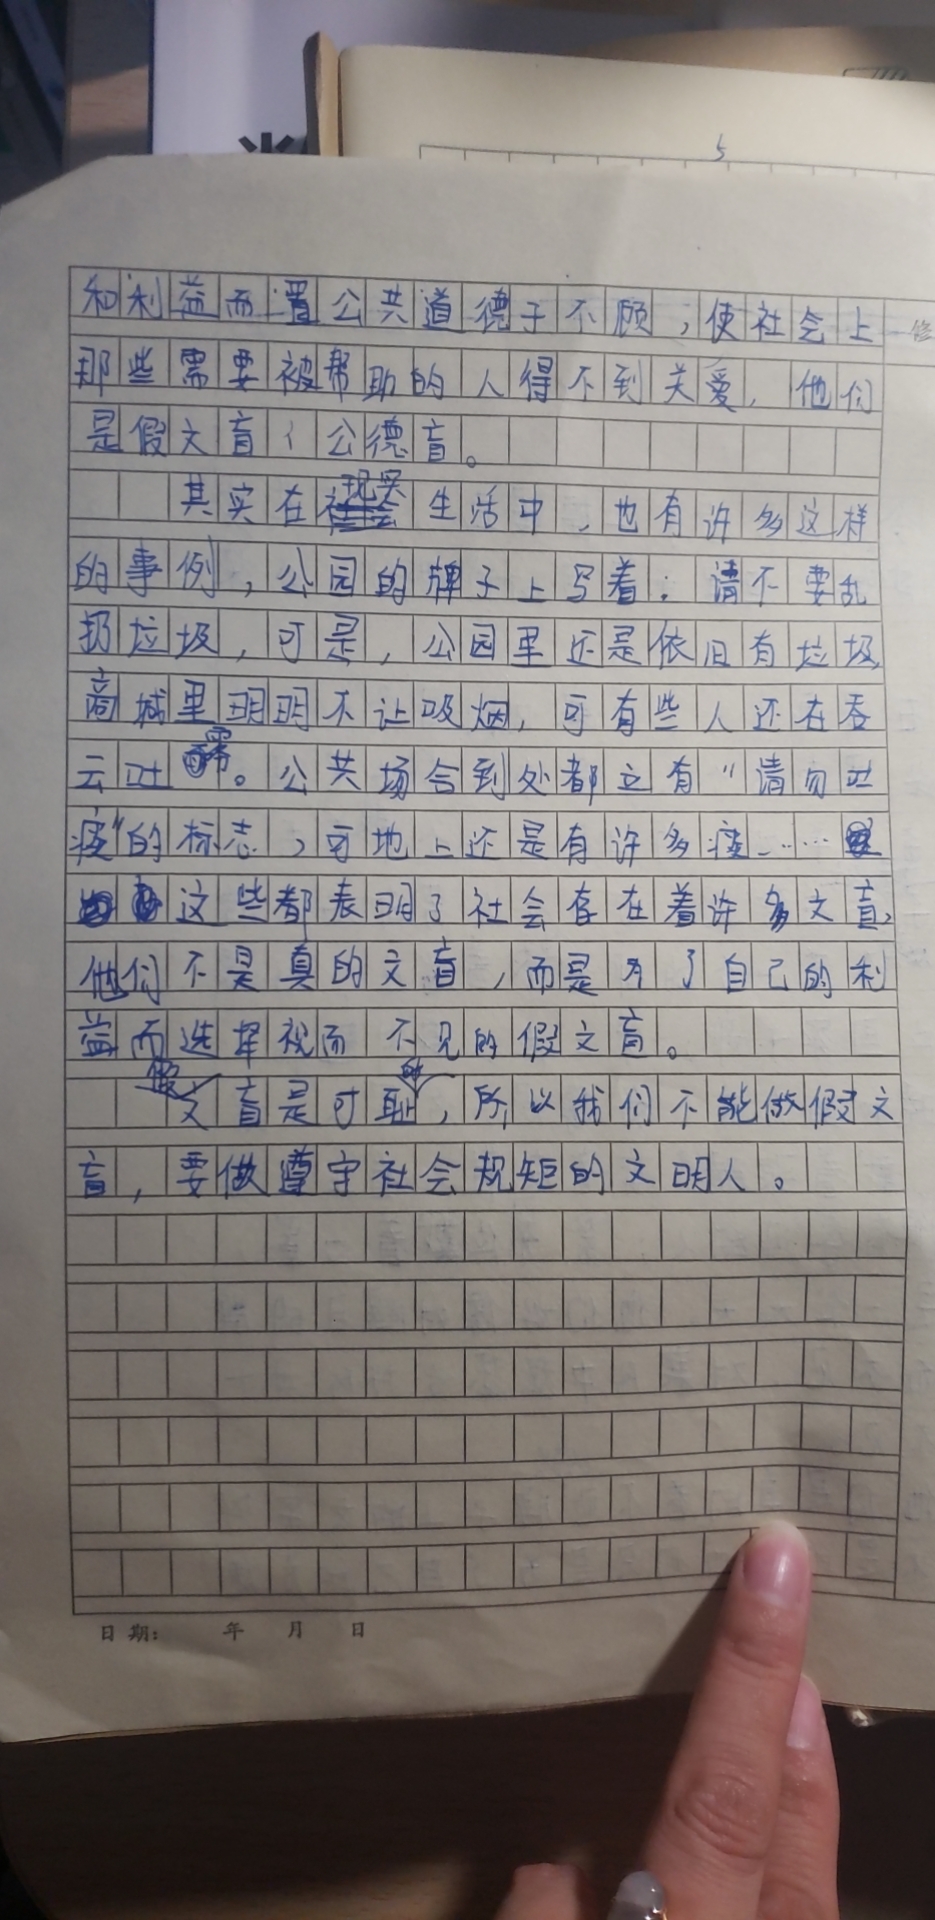 5
和利益而置公共道德于不顾，使社会上
修
那些需要被帮助的人得不到关爱，他们
是假文盲，公德盲。
其实在现实生活中，也有许多这样
的事例，公园的牌子上写着：请不要乱
扔垃圾，可是，公园里还是依旧有垃圾，
商城里明明不让吸烟，可有些人还在吞
云吐雾。公共场合到处都立有“请勿吐
痰”的标志，可地上还是有许多痰……
这些都表明了社会存在着许多文盲，
他们不是真的文盲，而是为了自己的利
益而选择视而不见的假文盲。
假文盲是可耻的，所以我们不能做假文
盲，要做遵守社会规矩的文明人。
日期： 年 月 日